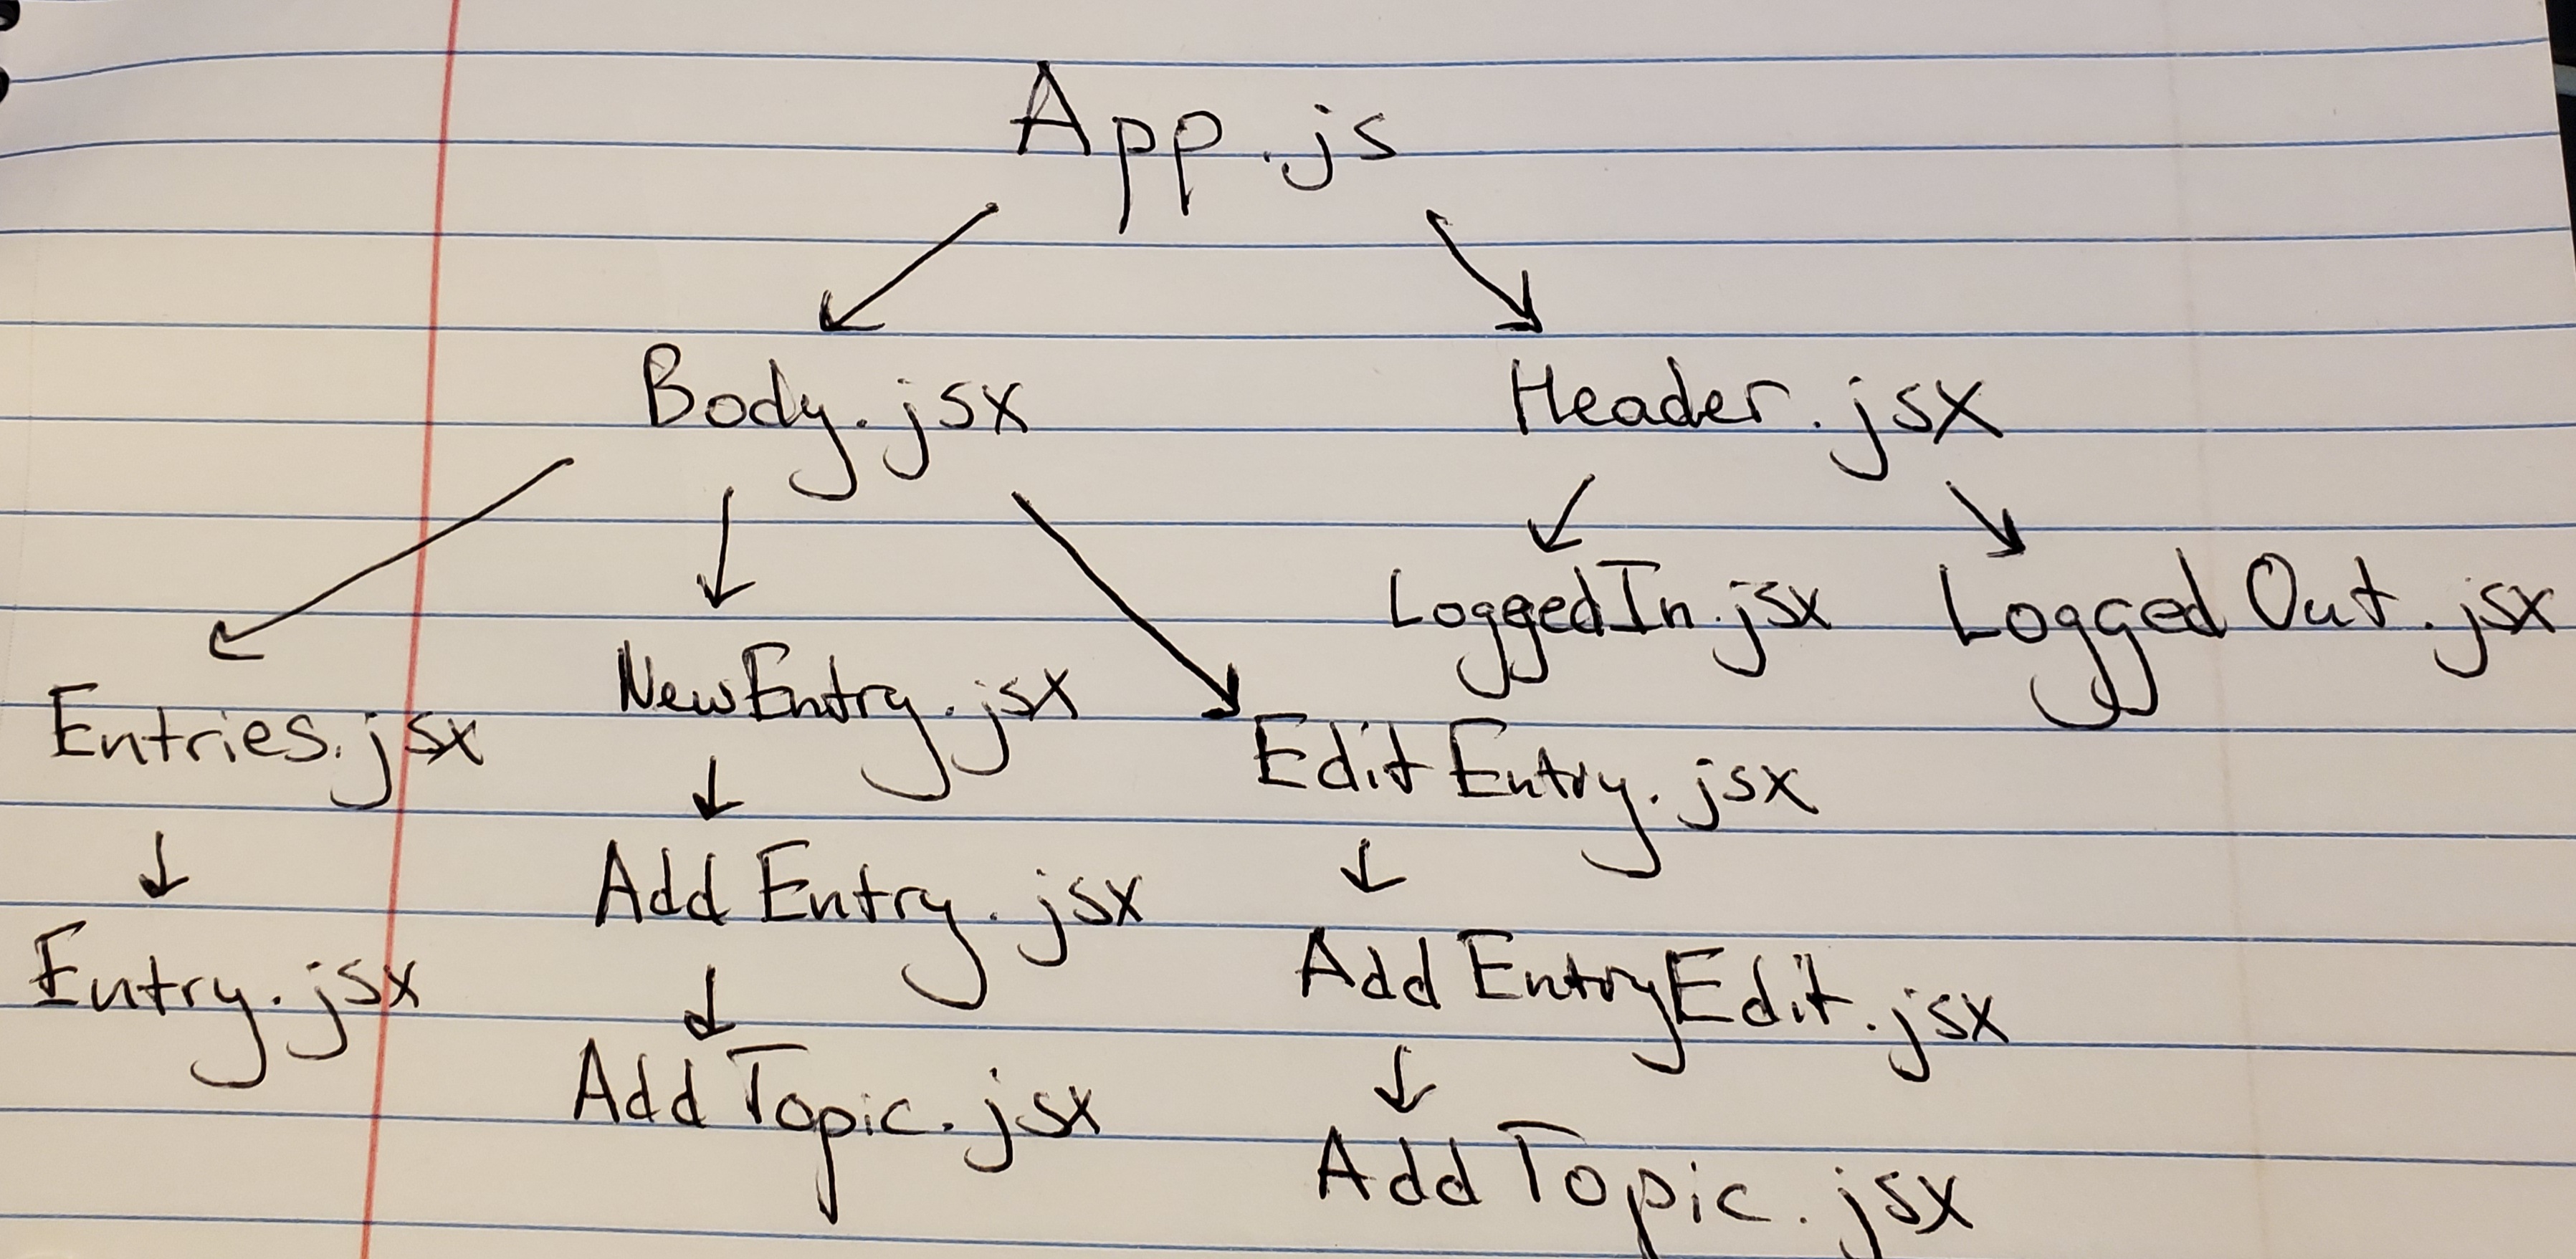 App.js
Body.jsx Header.jsx
LoggedIn.jsx Logged Out.jsx
Entries.jsx NewEntry.jsx Edit Entry.jsx
Entry.jsx Add Entry.jsx Add EntryEdit.jsx
Add Topic.jsx Add Topic.jsx